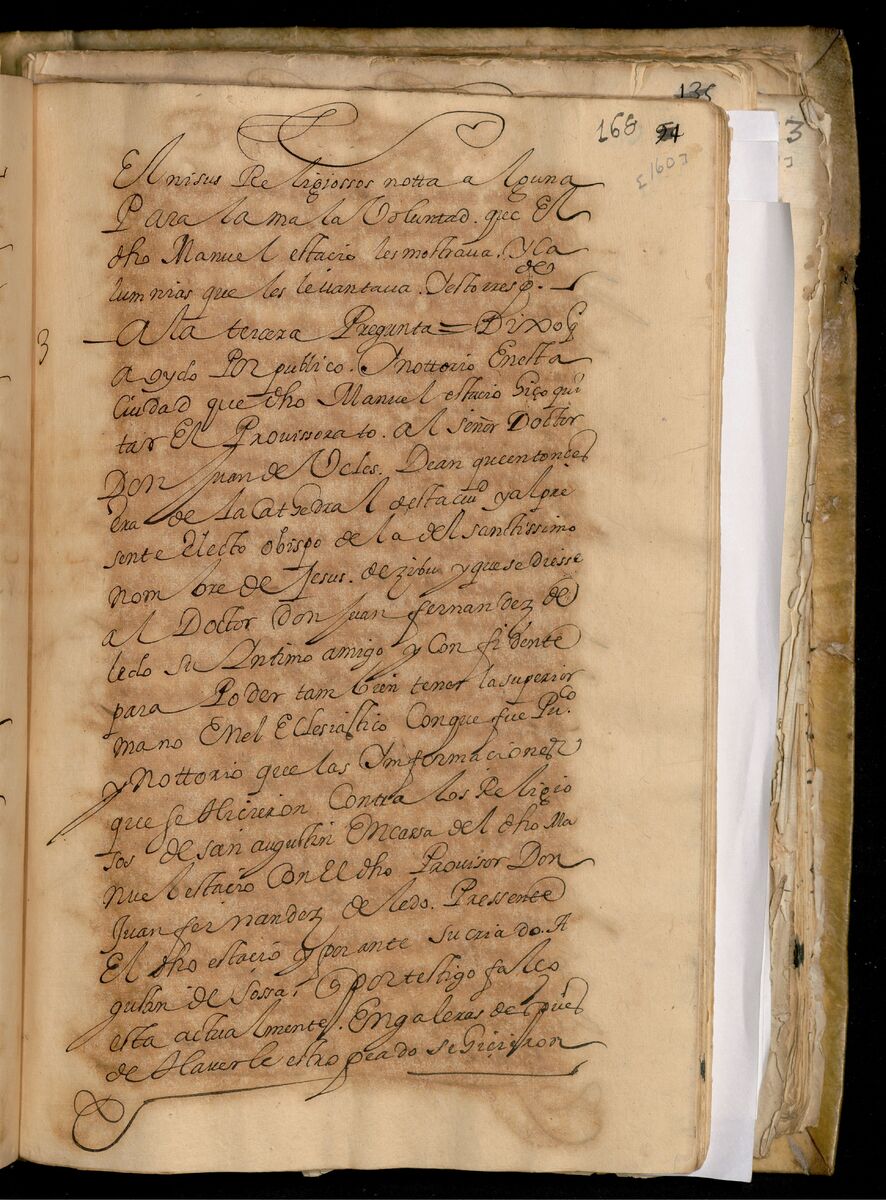 135
168 94
[160]
3
El nisus Religiossos notta alguna
Para la mala Voluntad. que El
dho Manuel estacio les mostraua. Y Ca
lumnias que les leuantaua. Y esto respde.
3
A la tercera Pregunta = Dixo q
a oydo Por publico. Y nottorio En esta
Ciudad que dho Manuel estacio hiço qui
tar El Prouissorato. al señor Doctor
Don Juan de Ucles. Dean que entonces
Era de la Cathedral desta ciud y al pre
sente Electo obispo de la del santissimo
nombre de Jesus. de zibu y que se diesse
al Doctor Don Juan fernandez de
ledo su Yntimo amigo y Confidente
para Poder tambien tener la superior
mano En el Eclesiastico Con que fue Puco
y Nottorio que las Ynformaciones
que se hicieron Contra los Religio
sos de san augustin En cassa del dho Ma
nuel estacio Con El dho Prouisor Don
Juan fernandez de ledo. Pressente
El dho estacio y por ante su criado. A
gustin de sossa. q por testigo falço
esta actualmente. En galeras despues
de Hauerle estropeado se hicieron